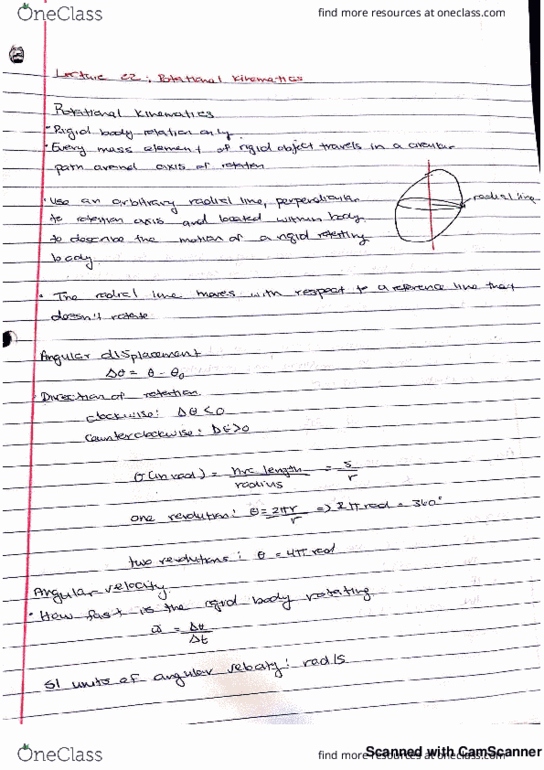 OneClass
find more resources at oneclass.com
Lecture 22: Rotational Kinematics
Rotational Kinematics
• Rigid body rotation only.
• Every mass element of rigid object travels in a circular
path around axis of rotation
• Use an arbitrary radial line, perpendicular
radial line
to rotation axis and located within body
to describe the motion of a rigid rotating
body.
• The radial line moves with respect to a reference line that
doesn't rotate
Angular displacement
Δθ = θ - θ₀
• Direction of rotation
clockwise: Δθ < 0
counterclockwise: Δθ > 0
θ (in rad) = arc length / radius = s / r
one revolution: θ = 2πr / r => 2π rad = 360°
two revolutions: θ = 4π rad
Angular velocity
• How fast is the rigid body rotating
ω = Δθ / Δt
SI units of angular velocity: rad/s
OneClass
find more resources at oneclass.com
Scanned with CamScanner